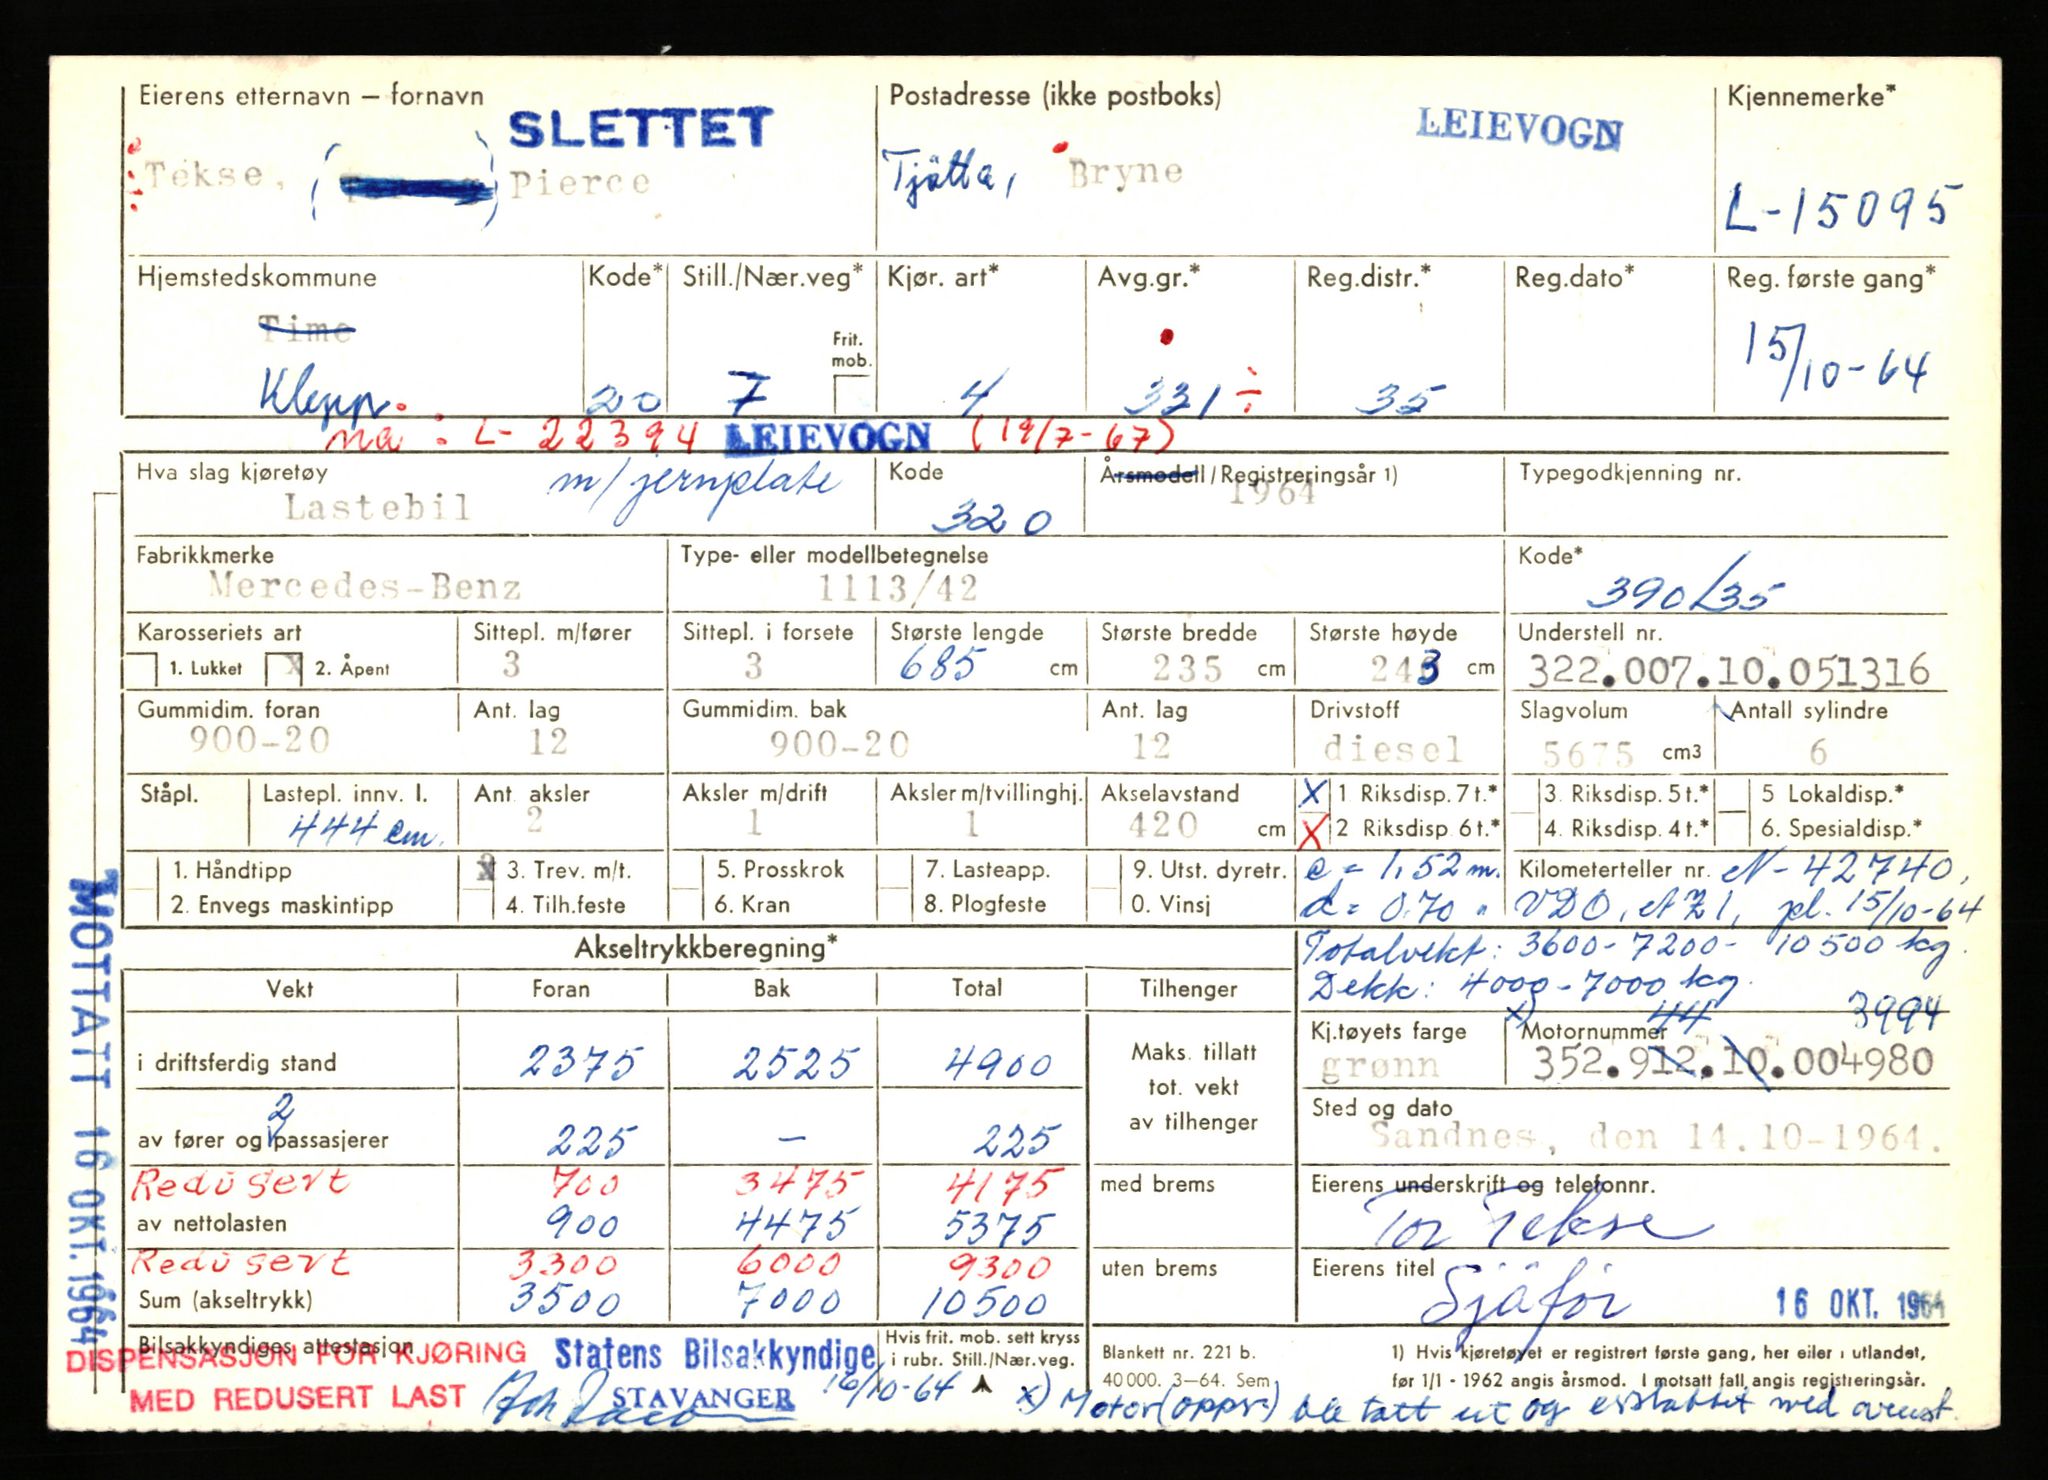 Eierens etternavn – fornavn SLETTET Postadresse (ikke postboks) LEIEVOGN Kjennemerke*
Tekse, Pierce Tjåtta, Bryne L-15095
Hjemstedskommune Kode* Still./Nær.veg* Kjør. art* Avg.gr.* Reg.distr.* Reg.dato* Reg. første gang*
Time Frit. mob. 15/10-64
Klepp. 20 7 4 331 ÷ 35
na : L- 22394 LEIEVOGN (19/7-67)
Hva slag kjøretøy m/jernplate Kode Årsmodell/Registreringsår 1) Typegodkjenning nr.
Lastebil 320 1964
Fabrikkmerke Type- eller modellbetegnelse Kode*
Mercedes-Benz 1113/42 390/35
Karosseriets art Sittepl. m/fører Sittepl. i forsete Største lengde Største bredde Største høyde Understell nr.
1. Lukket X 2. Åpent 3 3 685 cm 235 cm 243 cm 322.007.10.051316
Gummidim. foran Ant. lag Gummidim. bak Ant. lag Drivstoff Slagvolum Antall sylindre
900-20 12 900-20 12 diesel 5675 cm3 6
Ståpl. Lastepl. innv. l. Ant. aksler Aksler m/drift Aksler m/tvillinghj. Akselavstand X 1 Riksdisp. 7 t.* 3. Riksdisp. 5 t.* 5 Lokaldisp.*
444 cm. 2 1 1 420 cm X 2 Riksdisp. 6 t.* 4. Riksdisp. 4 t.* 6. Spesialdisp.*
1. Håndtipp X 3. Trev. m/t. 5. Prosskrok 7. Lasteapp. 9. Utst. dyretr. c = 1,52 m. Kilometerteller nr. N-42740,
2. Envegs maskintipp 4. Tilh.feste 6. Kran 8. Plogfeste 0. Vinsj d = 0,70 " VDO, pl. 15/10-64
Akseltrykkberegning* Totalvekt: 3600-7200- 10500 kg.
Dekk: 4000-7000 kg.
Vekt Foran Bak Total Tilhenger
x) 44 3994
Kj.tøyets farge Motornummer
i driftsferdig stand 2375 2525 4900 Maks. tillatt tot. vekt av tilhenger grønn 352.912.10.004980
Sted og dato
2
av fører og passasjerer 225 – 225 Sandnes, den 14.10-1964.
Redusert 700 3475 4175 med brems Eierens underskrift og telefonnr.
av nettolasten 900 4475 5375 Tor Tekse
Redusert 3300 6000 9300 uten brems Eierens titel
Sum (akseltrykk) 3500 7000 10500 Sjåfør 16 OKT. 1964
Bilsakkyndiges attestasjon Hvis frit. mob. sett kryss i rubr. Still./Nær.veg. Blankett nr. 221 b. 1) Hvis kjøretøyet er registrert første gang, her eller i utlandet,
40 000. 3–64. Sem før 1/1 - 1962 angis årsmod. I motsatt fall angis registreringsår.
DISPENSASJON FOR KJØRING Statens Bilsakkyndige,
MED REDUSERT LAST STAVANGER 16/10-64 x) Motor(oppr.) ble tatt ut og erstattet med ovenst.
MOTTATT 16 OKT. 1964